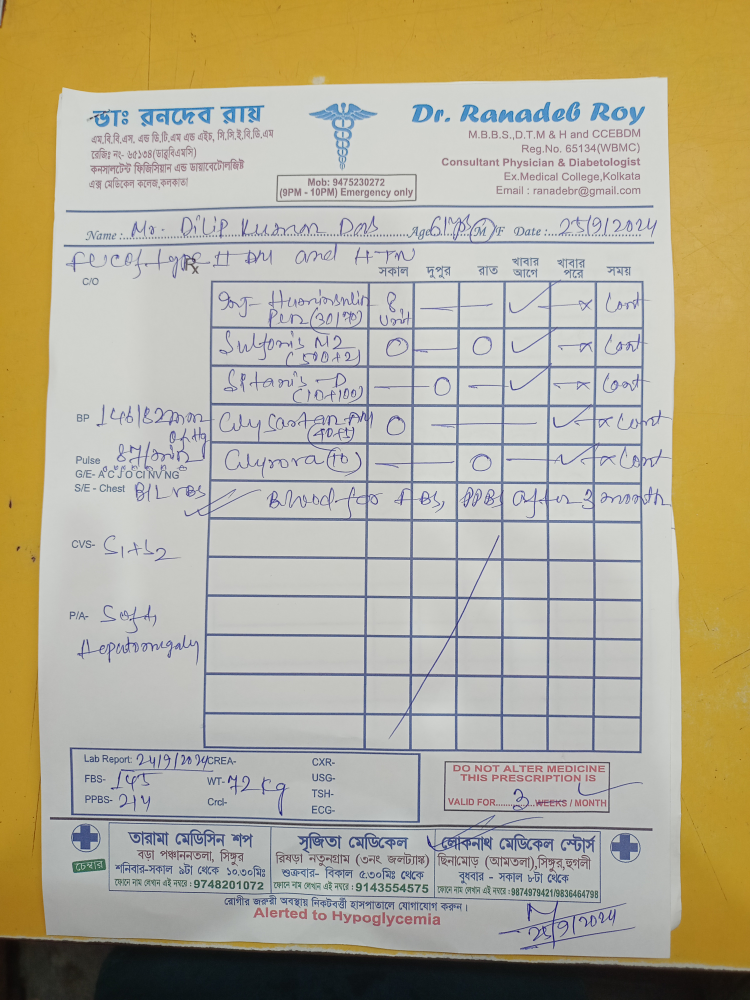 ডাঃ রনদেব রায়
এম.বি.বি.এস, এন্ড ডি.টি.এম এন্ড এইচ, সি.সি.ই.বি.ডি.এম
রেজিঃ নং- ৬৫১৩৪(ডাব্লুবিএমসি)
কনসালটেন্ট ফিজিসিয়ান এন্ড ডায়াবেটোলজিষ্ট
এক্স মেডিকেল কলেজ,কলকাতা
Mob: 9475230272
(9PM - 10PM) Emergency only
Dr. Ranadeb Roy
M.B.B.S.,D.T.M & H and CCEBDM
Reg.No. 65134(WBMC)
Consultant Physician & Diabetologist
Ex.Medical College,Kolkata
Email : ranadebr@gmail.com
Name : Mr. Dilip Kumar Das Age 61 yrs M/F Date : 25/9/2024
type II DM and HTN
Rx
C/O
সকাল দুপুর রাত খাবার আগে খাবার পরে সময়
Inj- Pen (30/70) 8 unit — ✓ —x Cont
Sulfonis M2 (500+2) O — O ✓ —x Cont
Sitanis-D (10+100) — O — ✓ —x Cont
BP 146/82 mm of Hg
Glysartan-AM (40+5) O — ✓ —x Cont
Pulse 87/min
Glyrova (10) — O — ✓ —x Cont
G/E- A C J O Cl NV NG
S/E - Chest B/L VBS
Blood for FBS, PPBS after 3 month
CVS- S1+S2
P/A- Soft,
Hepatomegaly
Lab Report: 24/9/2024 CREA- CXR-
FBS- 145 WT- 72 Kg USG-
PPBS- 214 Crcl- TSH-
ECG-
DO NOT ALTER MEDICINE
THIS PRESCRIPTION IS
VALID FOR 3 WEEKS / MONTH
চেম্বার
তারামা মেডিসিন শপ
বড়া পঞ্চাননতলা, সিঙ্গুর
শনিবার-সকাল ৯টা থেকে ১০.৩০মিঃ
ফোনে নাম লেখান এই নম্বরে : 9748201072
সৃজিতা মেডিকেল
রিষড়া নতুনগ্রাম (৩নং জলট্যাঙ্ক)
শুক্রবার- বিকাল ৫.৩০মিঃ থেকে
ফোনে নাম লেখান এই নম্বরে : 9143554575
লোকনাথ মেডিকেল স্টোর্স
ছিনামোড় (আমতলা),সিঙ্গুর,হুগলী
বুধবার - সকাল ৮টা থেকে
ফোনে নাম লেখান এই নম্বরে : 9874979421/9836464798
রোগীর জরুরী অবস্থায় নিকটবর্ত্তী হাসপাতালে যোগাযোগ করুন।
Alerted to Hypoglycemia
25/9/2024